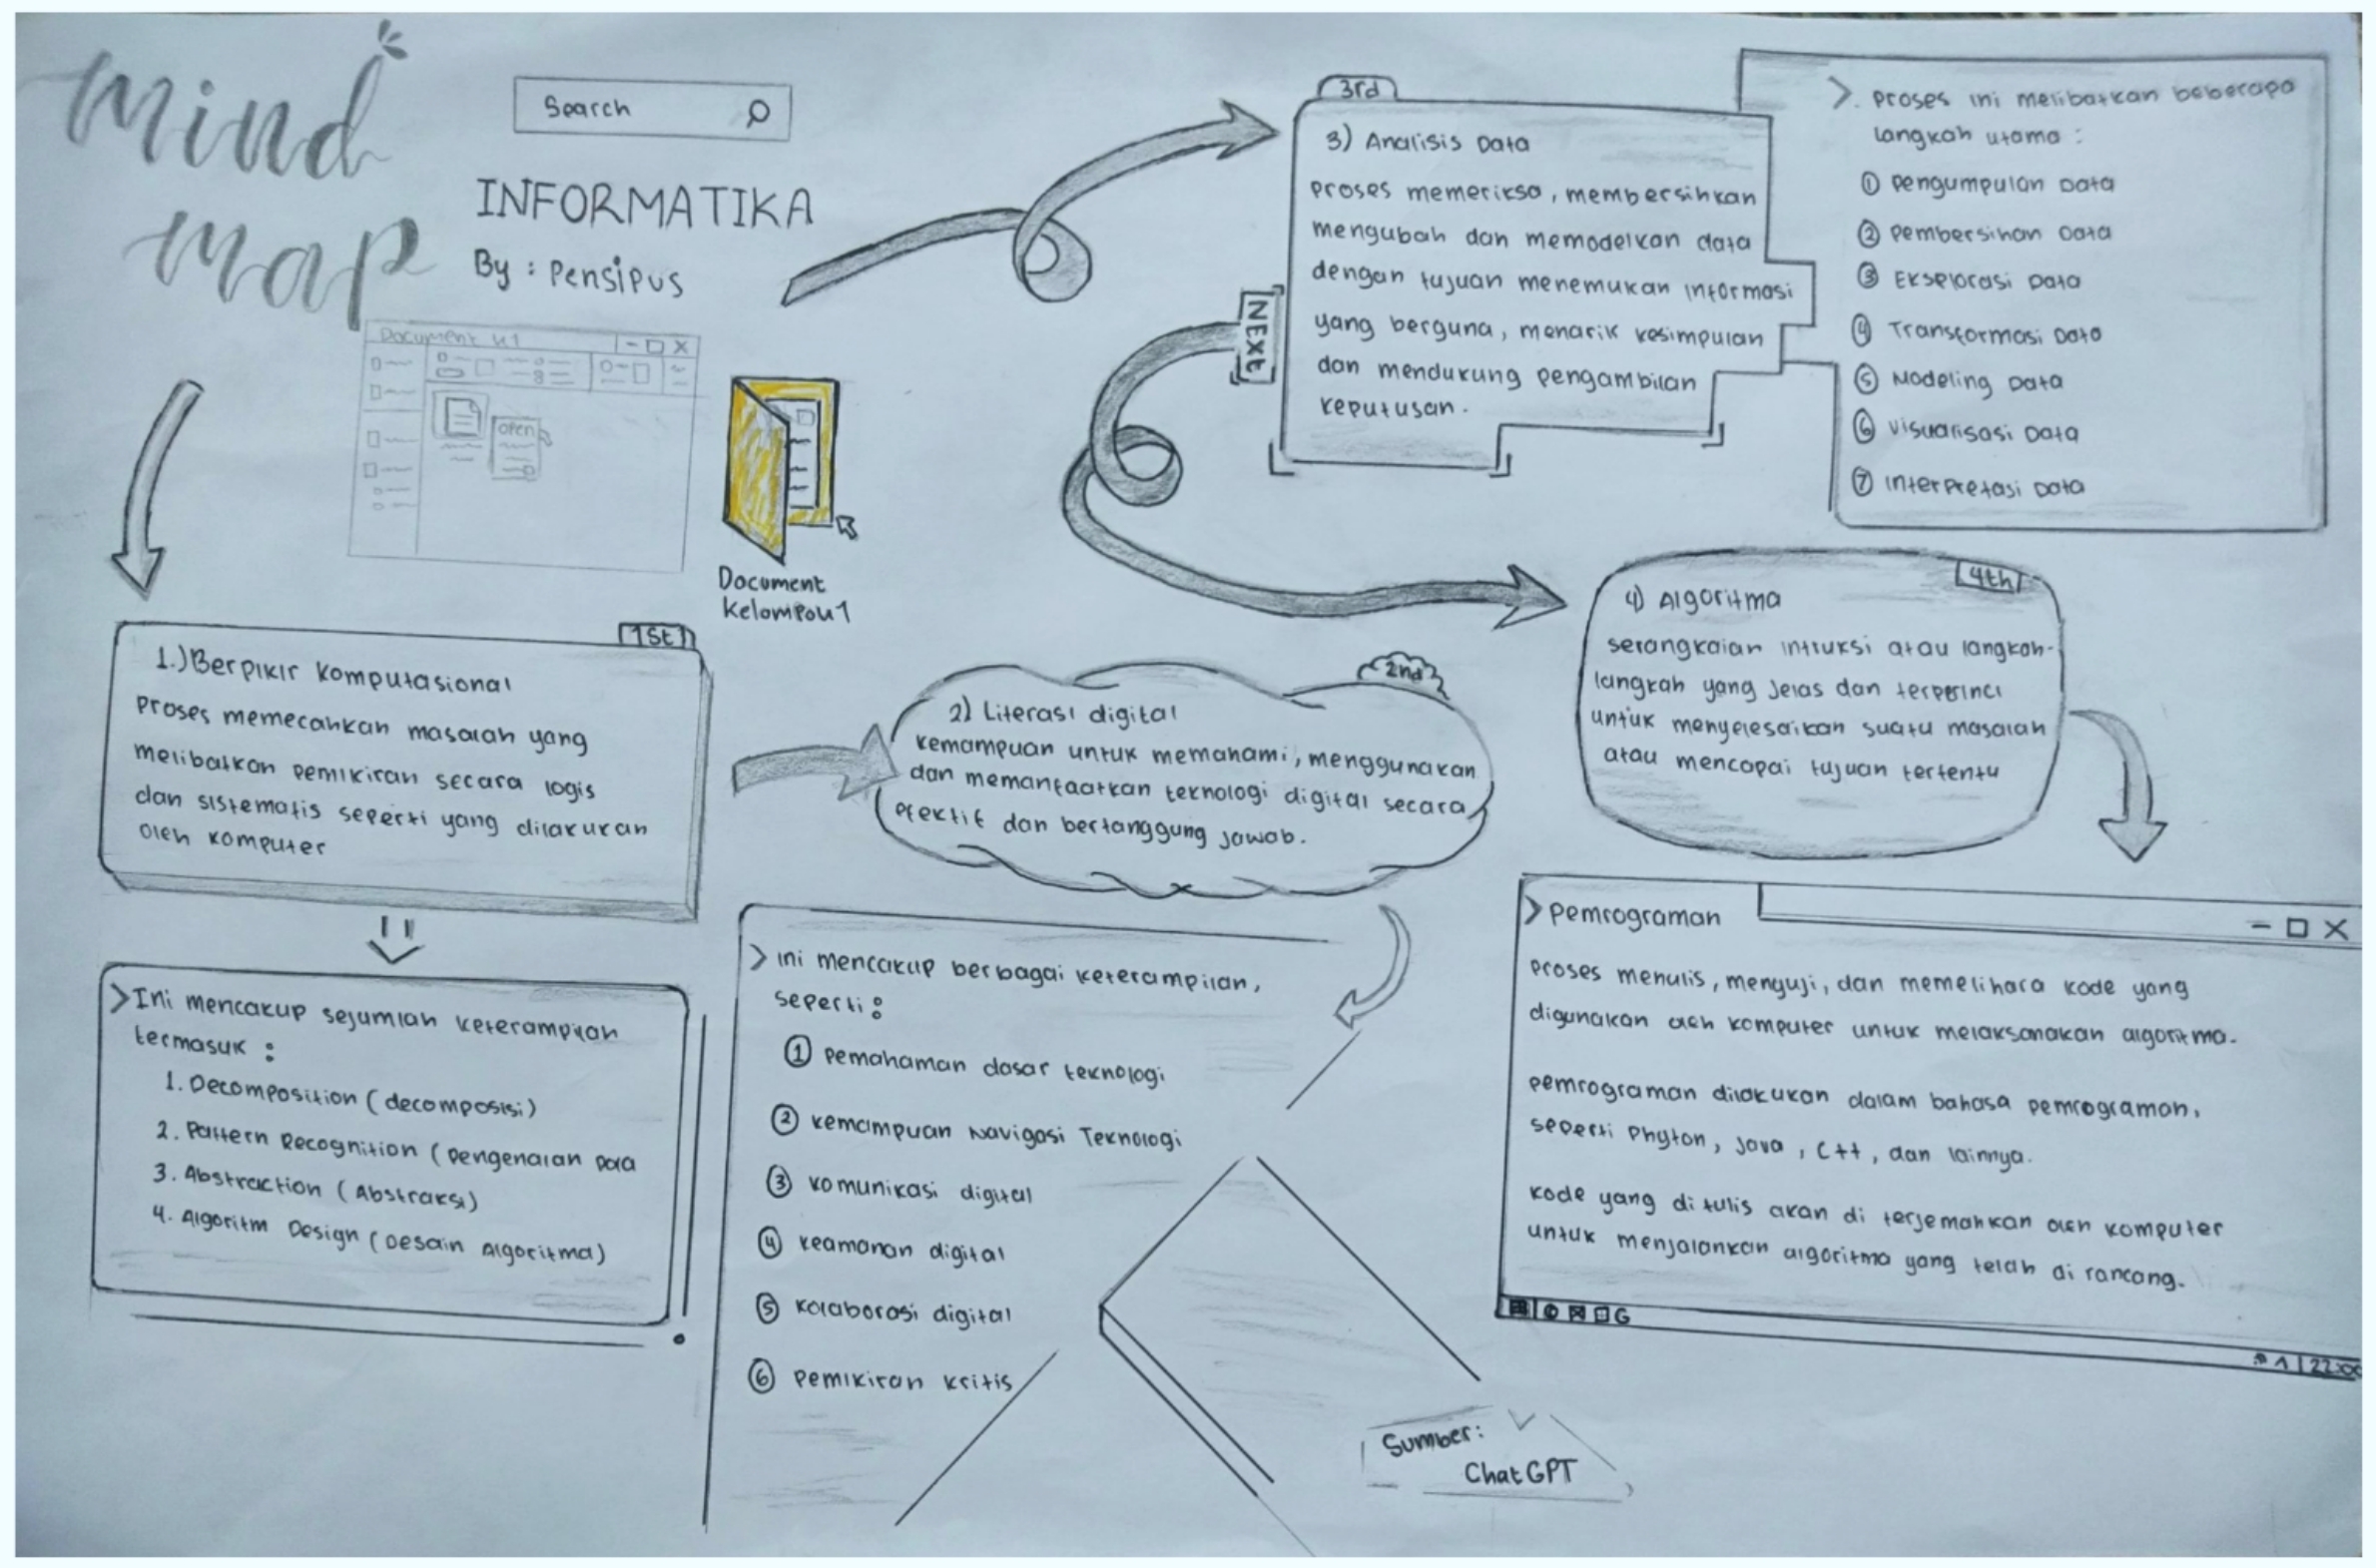 mind
map
Search
INFORMATIKA
By : Pensipus
Document k1
OPEN
Document
Kelompok 1
1st
1.) Berpikir Komputasional
Proses memecahkan masalah yang
melibatkan pemikiran secara logis
dan sistematis seperti yang dilakukan
oleh komputer
> Ini mencakup sejumlah keterampilan
termasuk :
1. Decomposition (decomposisi)
2. Pattern Recognition (pengenalan pola
3. Abstraction (Abstraksi)
4. Algoritm Design (Desain Algoritma)
2nd
2) Literasi digital
kemampuan untuk memahami, menggunakan
dan memanfaatkan teknologi digital secara
efektif dan bertanggung jawab.
> ini mencakup berbagai keterampilan,
seperti :
① pemahaman dasar teknologi
② kemampuan Navigasi Teknologi
③ komunikasi digital
④ keamanan digital
⑤ kolaborasi digital
⑥ pemikiran kritis
3rd
3) Analisis Data
proses memeriksa, membersihkan
mengubah dan memodelkan data
dengan tujuan menemukan informasi
yang berguna, menarik kesimpulan
dan mendukung pengambilan
keputusan.
NEXt
>. Proses ini melibatkan beberapa
langkah utama :
① Pengumpulan Data
② Pembersihan Data
③ Eksplorasi Data
④ Transformasi Data
⑤ Modeling Data
⑥ Visualisasi Data
⑦ Interpretasi Data
4th
4) Algoritma
serangkaian intruksi atau langkah-
langkah yang jelas dan terperinci
untuk menyelesaikan suatu masalah
atau mencapai tujuan tertentu
> Pemrograman
– □ X
Proses menulis, menguji, dan memelihara kode yang
digunakan oleh komputer untuk melaksanakan algoritma.
Pemrograman dilakukan dalam bahasa pemrograman,
seperti Phyton, Java, C++, dan lainnya.
Kode yang di tulis akan di terjemahkan oleh komputer
untuk menjalankan algoritma yang telah di rancang.
G
22:00
Sumber:
ChatGPT